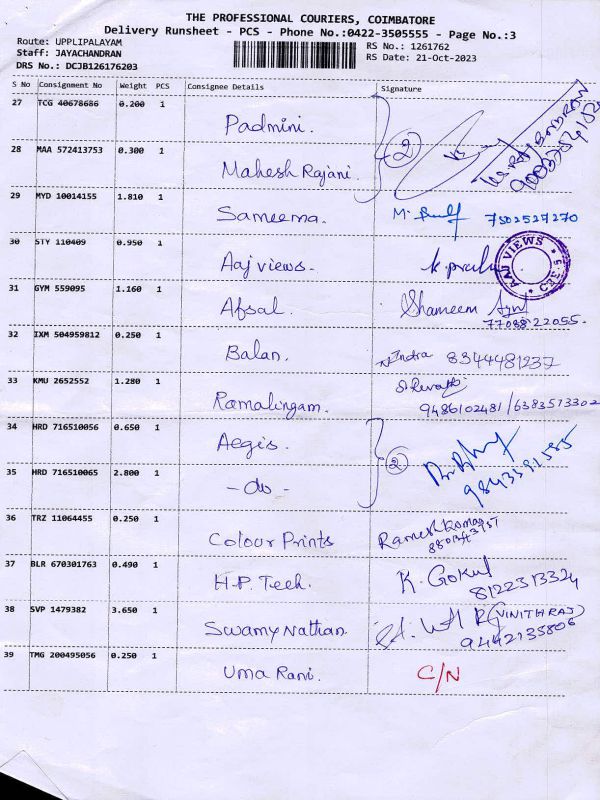 THE PROFESSIONAL COURIERS, COIMBATORE
Delivery Runsheet - PCS - Phone No.:0422-3505555 - Page No.:3
Route: UPPLIPALAYAM
Staff: JAYACHANDRAN
DRS No.: DCJB126176203
RS No.: 1261762
RS Date: 21-Oct-2023
S No Consignment No Weight PCS Consignee Details Signature
27 TCG 40678686 0.200 1 Padmini.
28 MAA 572413753 0.300 1 Mahesh Rajani. 2
29 MYD 10014155 1.810 1 Sameema. M. 7502527270
30 STY 110409 0.950 1 Aaj views. K. AAJ VIEWS * CBE-5 *
31 GYM 559095 1.160 1 Afsal. Shameem
7708822055.
32 IXM 504959812 0.250 1 Balan. Indra 8344481237
33 KMU 2652552 1.280 1 Ramalingam. 9486102481/6383573302
34 HRD 716510056 0.650 1 Aegis. 2
35 HRD 716510065 2.800 1 - do -
36 TRZ 11064455 0.250 1 Colour Prints Ramesh Kumar
37 BLR 670301763 0.490 1 H.P. Tech. K. Gokul
8122313324
38 SVP 1479382 3.650 1 Swamy Nathan. (VINITH RAJ)
9442135806
39 TMG 200495056 0.250 1 Uma Rani. C/N